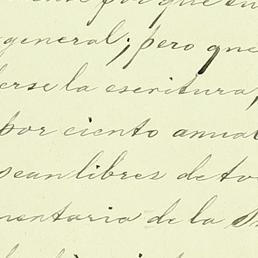 por que en
general; pero que
erse la escritura,
por ciento anual
sean libres de to
mentaria de la